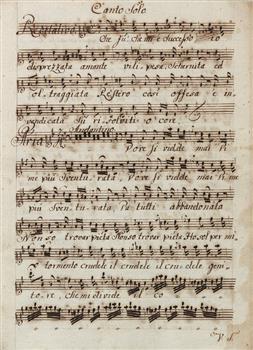 Canto Solo
Recitativo Che fù che mi è successo io
disprezzata amante vilipesa Schernita ed
oltraggiata Resterò così offesa e in=
vendicata Sù risolviti o core
Andantino
Aria Dove si vidde mai Di
me più Sventurata, Dove si vidde mai di me
più Sventurata Da tutti abbandonata
Non so trovar pietà Non so trovar pietà Ho sol per mi
tormento crudele il crudele il crudele geni=
tore, che mi divide il co
V. S.